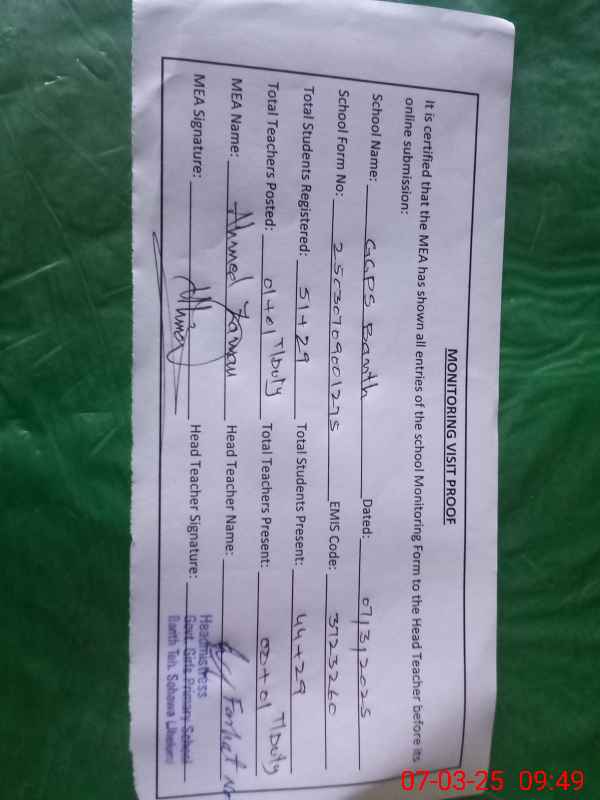 MONITORING VISIT PROOF
It is certified that the MEA has shown all entries of the school Monitoring Form to the Head Teacher before its
online submission:
School Name: GGPS Banth Dated: 07/3/2025
School Form No: 25030709001275 EMIS Code: 3723260
Total Students Registered: 51+29 Total Students Present: 44+29
Total Teachers Posted: 01+01 T/Duty Total Teachers Present: 00+01 T/Duty
MEA Name: Ahmed Head Teacher Name: Farhat
MEA Signature: Head Teacher Signature:
Headmistress
Govt. Girls Primary School
Banth Teh. Sohawa (Jhelum)
07-03-25 09:49